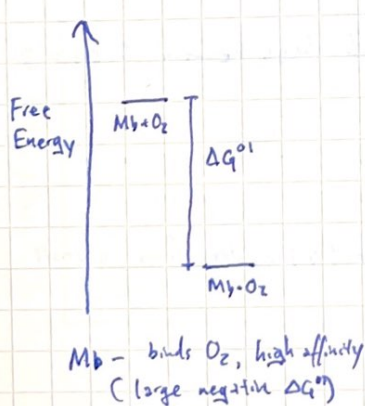 Free
Energy
Mb+O₂
ΔG°'
Mb·O₂
Mb - binds O₂, high affinity
(large negative ΔG°')